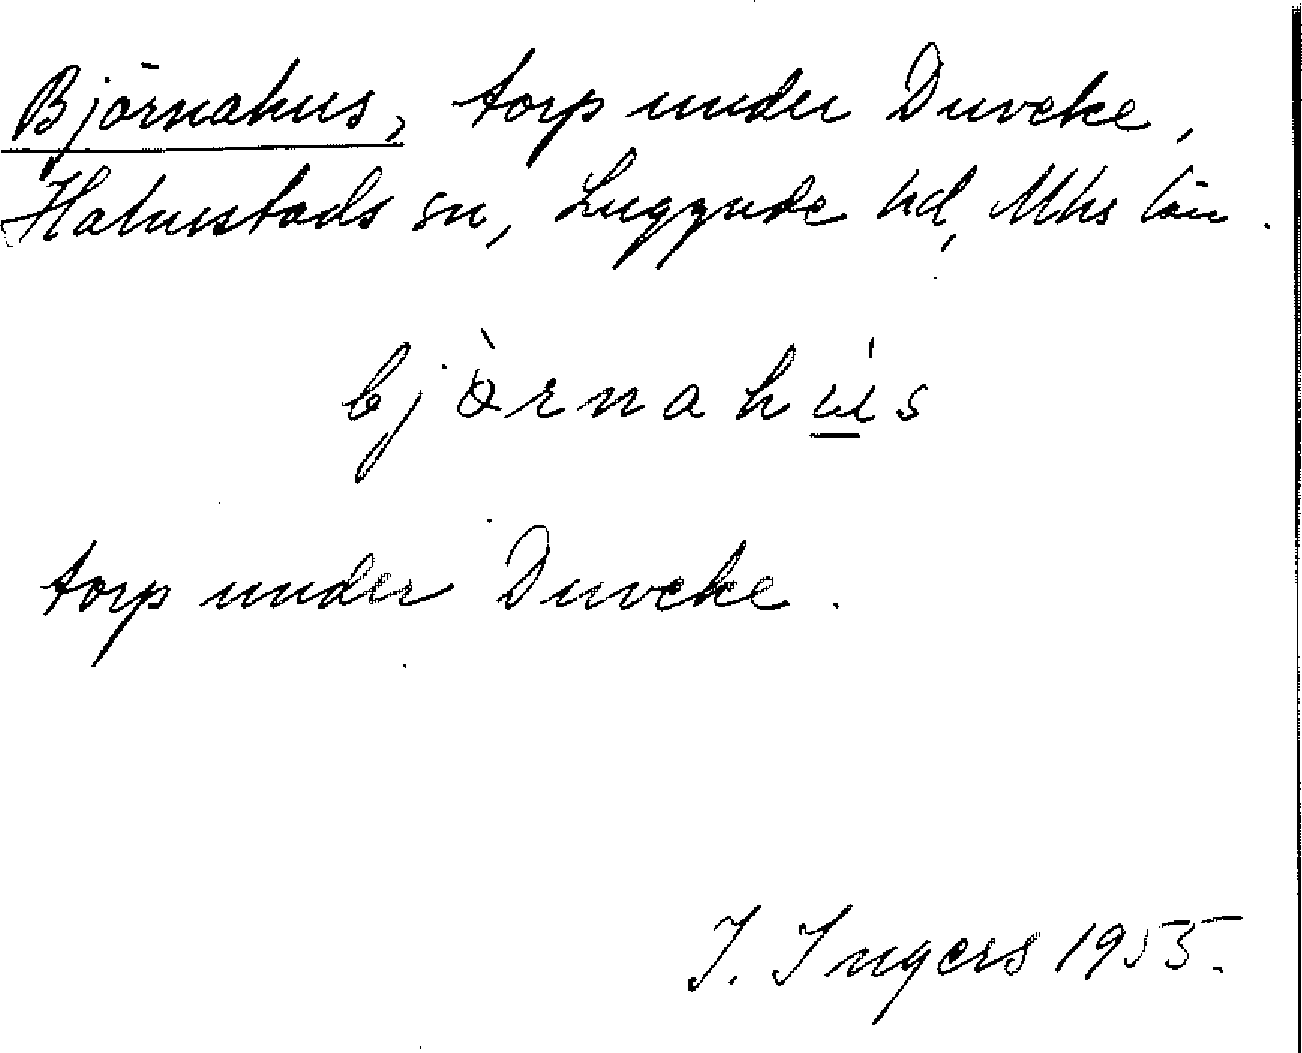 Björnahus, torp under Duveke,
Halmstads sn, Luggude hd, Mhs län.
bjòrnahú̲s
torp under Duveke.
I. Ingers 1955.